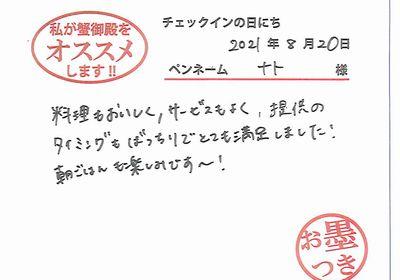 私が蟹御殿を
オススメ
します!!
チェックインの日にち
2021年8月20日
ペンネーム ナト 様
料理もおいしく,サービスもよく,提供の
タイミングもばっちりでとても満足しました!
朝ごはんも楽しみです〜!
お墨
つき